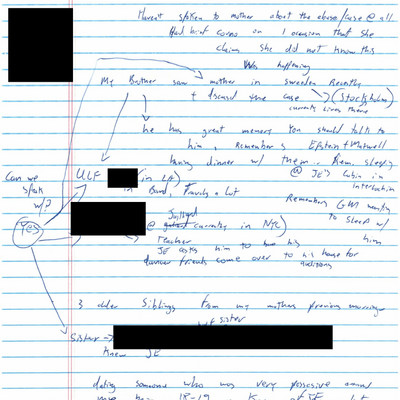 Haven't spoken to mother about the abuse/case @ all
Had brief convo on 1 occasion that she
claim she did not know this
was happening
My Brother saw mother in Sweden Recently
+ discussed the case (Stockholm)
currently lives there
he has great memory You should talk to
him, Remembers Epstein + Maxwell
having dinner w/ them. Rem. sleeping
@ JE's Cabin in
Interlochen
Can we
speak
w/?
Yes
ULF (in LA)
in Band, Travels a lot
Remembers GM wanting
to sleep w/
him
@ currently in NYC)
teacher
JE asks him to his
friends come over to his house for
3 older Siblings from my mothers previous marriage
half sister
Sister →
Knew JE
dating someone who was very possessive named
18-19 JE